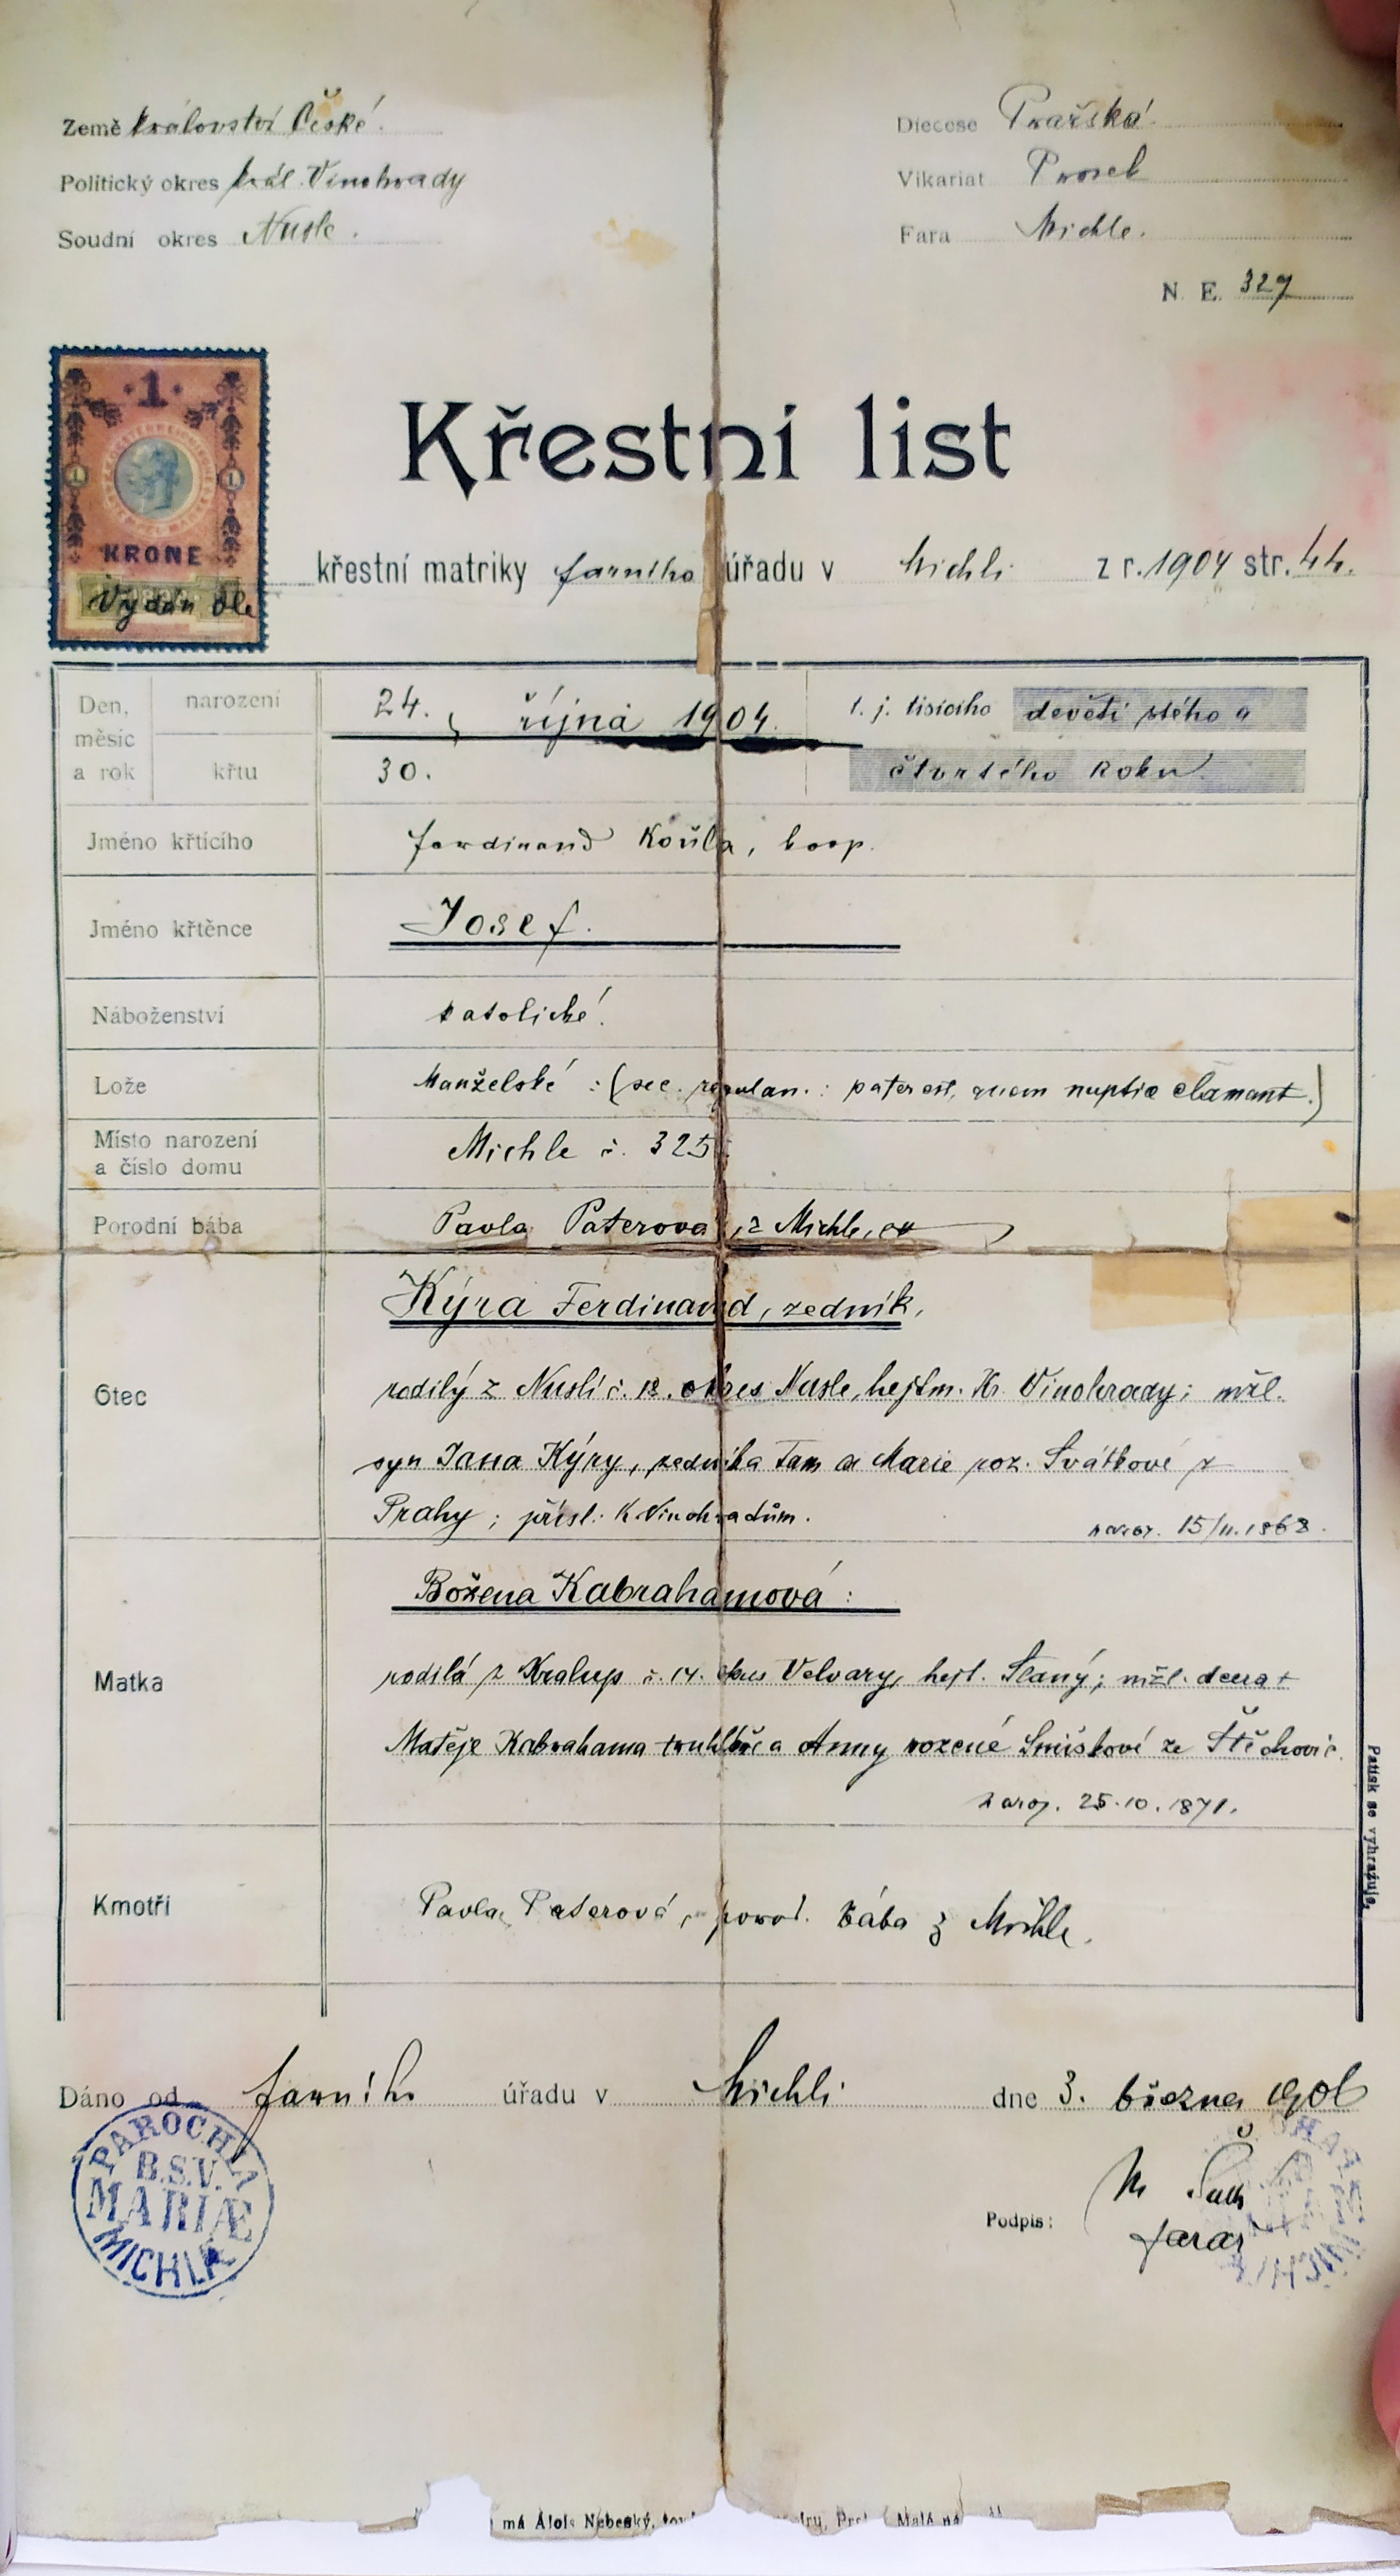 Země království České.
Diecese Pražská.
Politický okres král. Vinohrady
Vikariat Prosek
Soudní okres Nusle.
Fara Michle.
N. E. 327
1
KRONE
Křestní list
Vydán dle křestní matriky farního úřadu v Michli z r. 1904 str. 44.
Den, měsíc a rok
narození
24. října 1904.
t. j. tisícího devíti stého a
křtu
30.
čtvrtého roku
Jméno křtícího
Ferdinand Kouřla, koop.
Jméno křtěnce
Josef.
Náboženství
katolické.
Lože
Manželské :(sec. regulam.: pater est, quem nuptiæ clamant.)
Místo narození
a číslo domu
Michle č. 325
Porodní bába
Pavla Paterova, z Michle, ex
Otec
Kýra Ferdinand, zedník,
rodilý z Nuslí č. 18. okres Nusle, hejtm. Kr. Vinohrady; mžl.
syn Jana Kýry, zedníka tam a Marie roz. Svátkové z
Prahy; přísl. K. Vinohradům.
naroz. 15/11.1868.
Matka
Božena Kabrahamová:
rodilá z Kralup č. 14. okres Velvary, hejt. Slaný; mžl. dcera +
Matěje Kabrahama truhláře a Anny rozené Smíškové ze Štěchovic.
naroz. 25.10.1871.
Kmotři
Pavla Paterová, porod. bába z Michle.
Patisk se vyhražuje.
Dáno od farního úřadu v Michli dne 3. března 1906
PAROCHIA
B.S.V.
MARIÆ
MICHLÆ
Podpis:
farář
má Alois Nebeský,
Malé ná